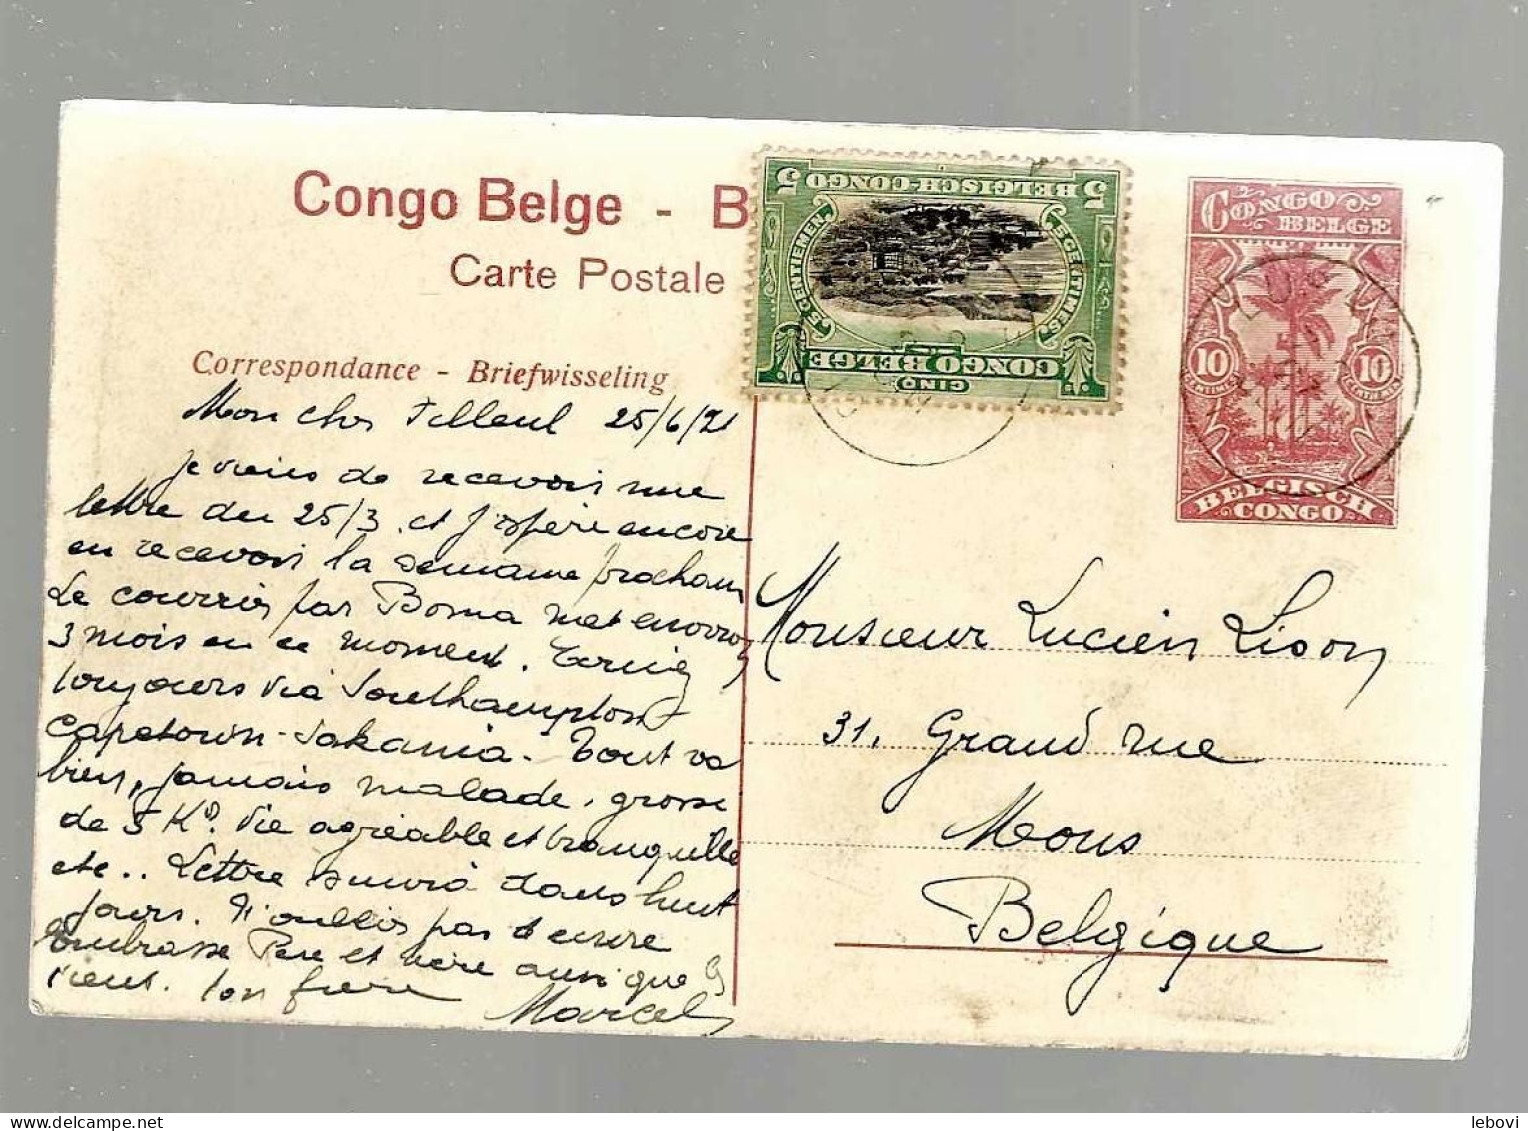 Congo Belge - B
Carte Postale
Correspondance - Briefwisseling
5 BELGISCH-CONGO 5
5 CENTIEMEN
5 CENTIMES
CINQ
CONGO BELGE
CONGO
BELGE
10 10
BELGISCH
CONGO
LUS
Mon cher Filleul 25/6/21
je viens de recevoir une
lettre du 25/3 et j'espère encore
en recevoir la semaine prochain
Le courrier par Boma met environ
3 mois en ce moment. Ecrivez
toujours via Southampton
Capetown-Sakania. Tout va
bien, jamais malade, grossi
de 5 K°. Vie agréable et tranquille
etc.. Lettre suivra dans huit
jours. N'oublies pas d'ecrire
Embrasse Père et mère ainsi que
ton frère
Marcel
Monsieur Lucien Lison
31, Grand rue
Mons
Belgique
lebovi